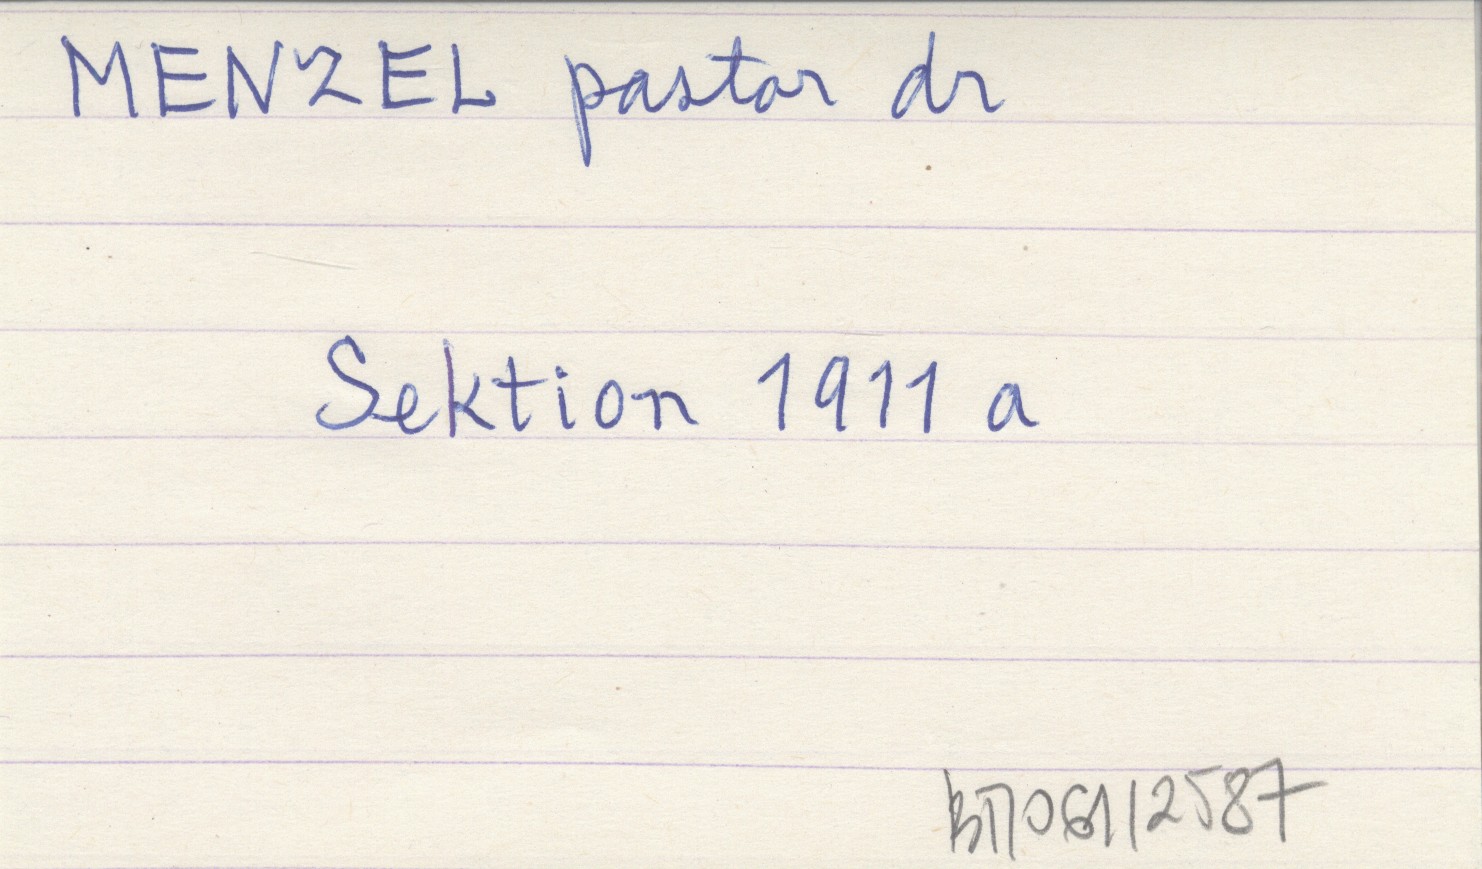 MENZEL pastor dr
Sektion 1911 a